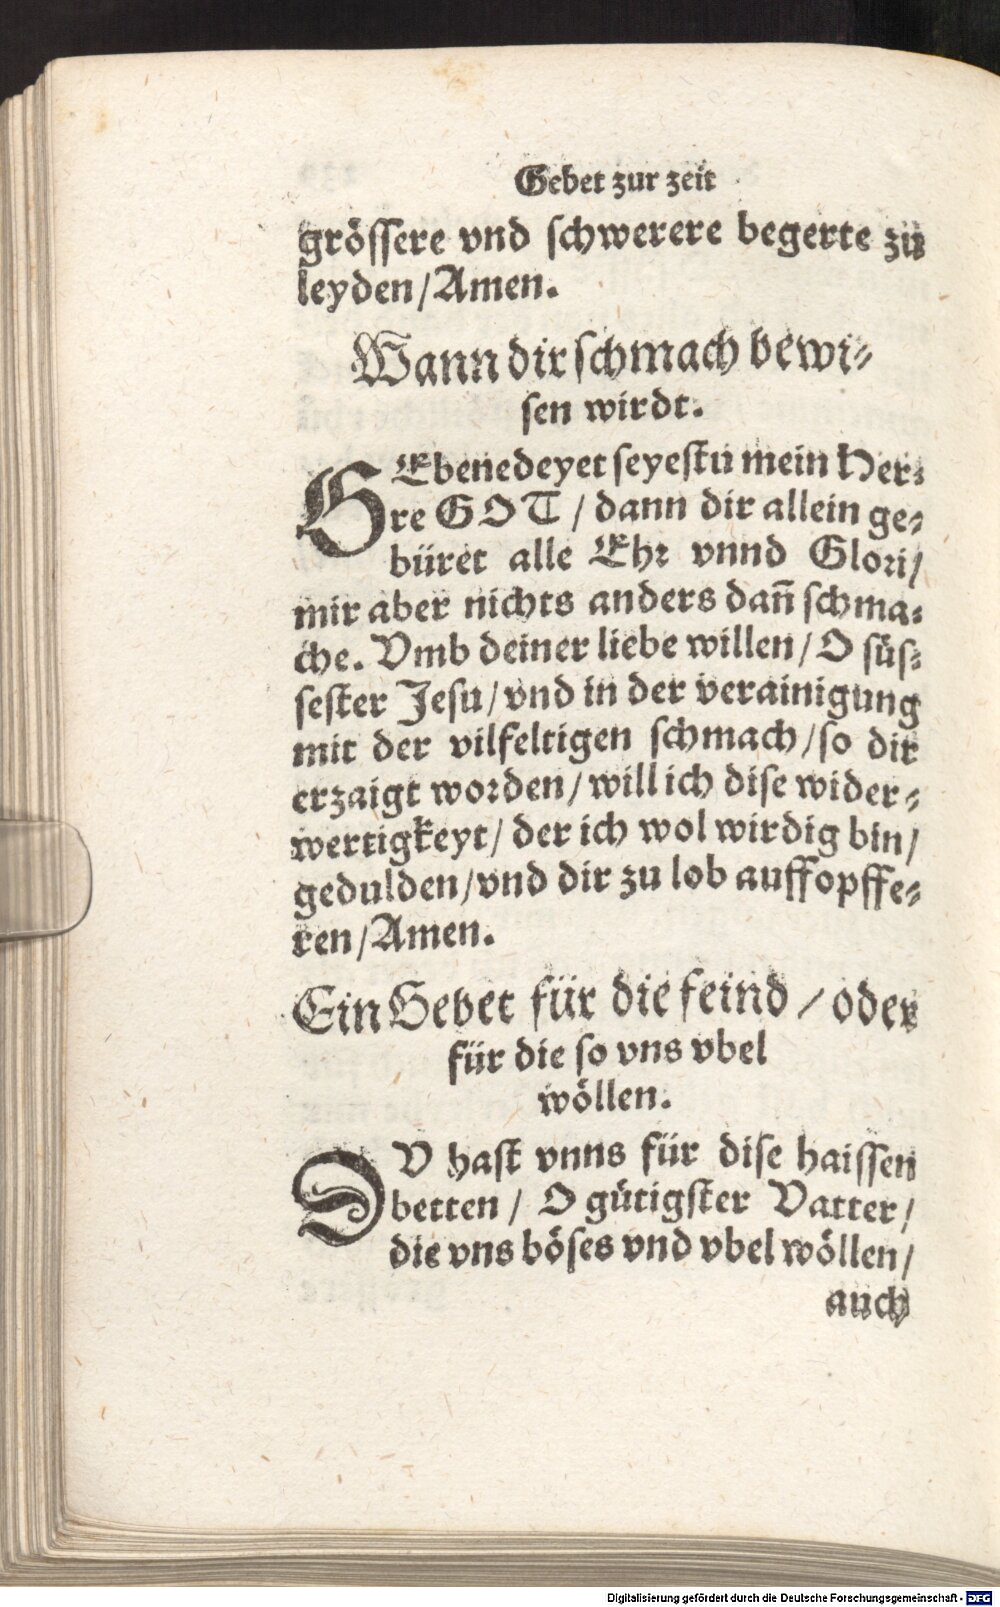 Gebet zur zeit
gröſſere vnd ſchwerere begerte zů
leyden/Amen.
Wann dir ſchmach bewi⸗
ſen wirdt.
GEbenedeyet ſeyeſtu mein Her⸗
re GOT / dann dir allein ge⸗
büret alle Ehꝛ vnnd Gloꝛi/
mir aber nichts anders dañ ſchma⸗
che. Vmb deiner liebe willen/ O ſüſ⸗
ſeſter Jeſu/vnd in der verainigung
mit der vilfeltigen ſchmach/ſo dir
erzaigt woꝛden/will ich diſe wider⸗
wertigkeyt/ der ich wol wirdig bin/
gedulden/vnd dir zu lob auffopffe⸗
ren/Amen.
Ein Gebet für die feind / oder
für die ſo vns vbel
wöllen.
DV haſt vnns für diſe haiſſen
betten/ O gütigſter Vatter/
die vns böſes vnd vbel wöllen/
auch
Digitalisierung gefördert durch die Deutsche Forschungsgemeinschaft - DFG